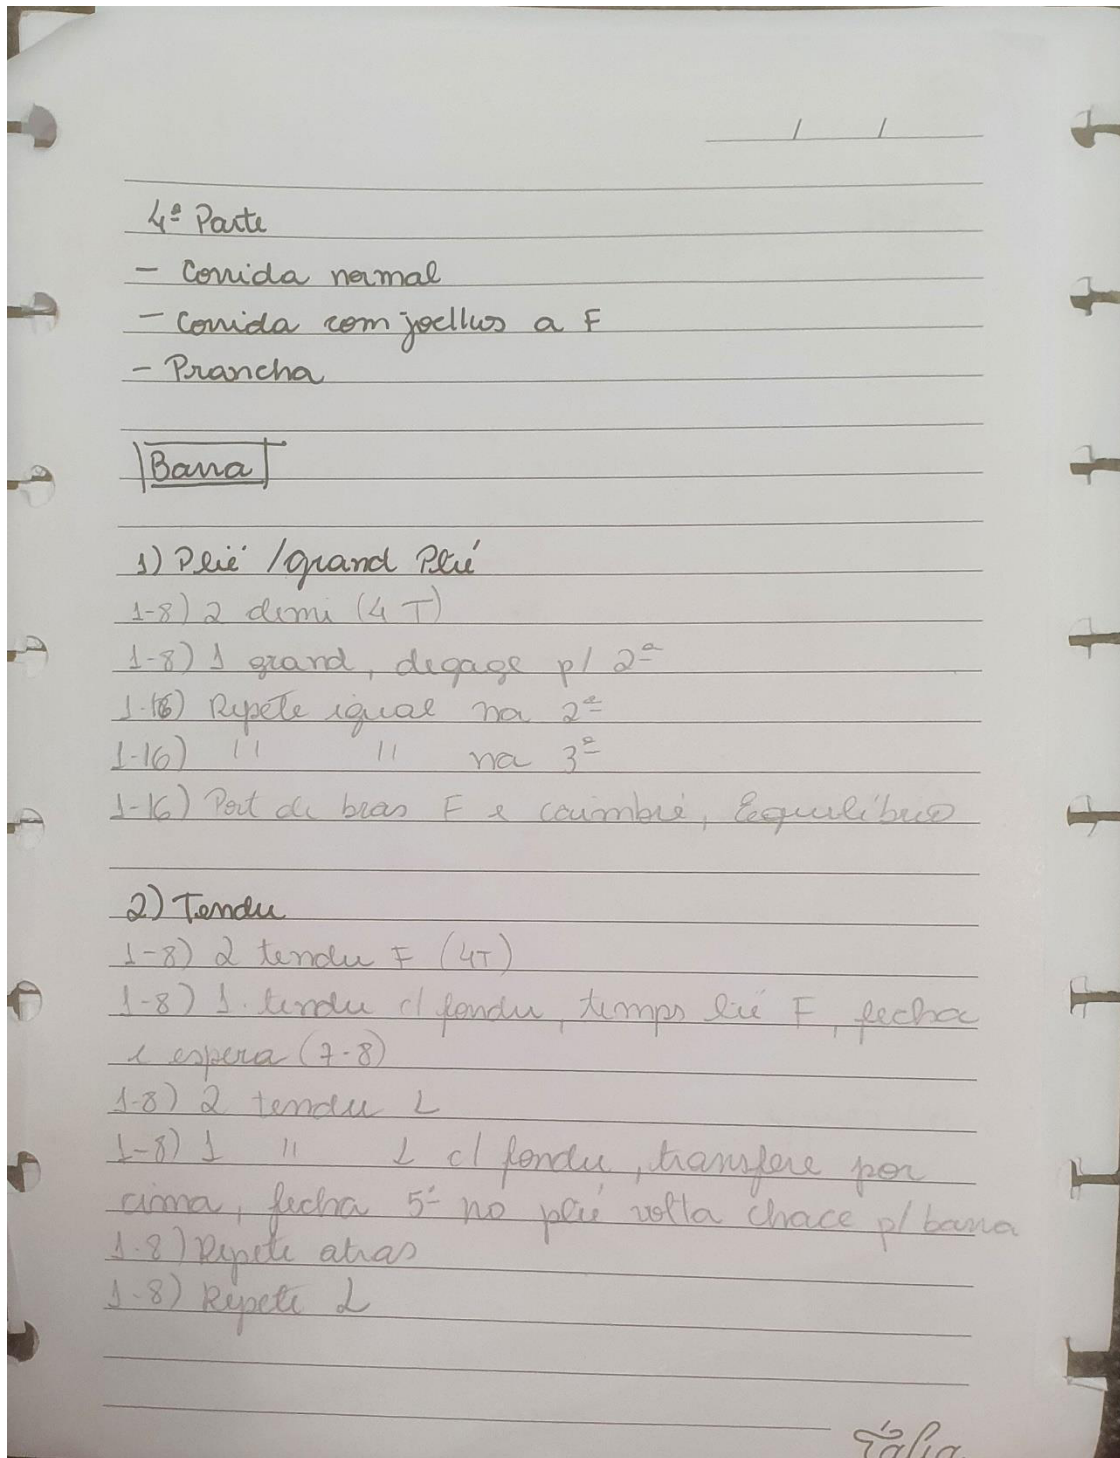 / /
4ª Parte
- Corrida normal
- Corrida com joelhos a F
- Prancha
Barra
1) Plié /grand Plié
1-8) 2 demi (4 T)
1-8) 1 grand, degage p/ 2ª
1-16) Repete igual na 2ª
1-16) " " na 3ª
1-16) Port de bras F e caimbré, Eequilíbrio
2) Tendu
1-8) 2 tendu F (4T)
1-8) 1 tendu c/ fondu, temps lié F, fecha
e espera (7-8)
1-8) 2 tendu L
1-8) 1 " L c/ fondu, transfere por
cima, fecha 5ª no plié volta chace p/ barra
1-8) Repete atras
1-8) Repete L